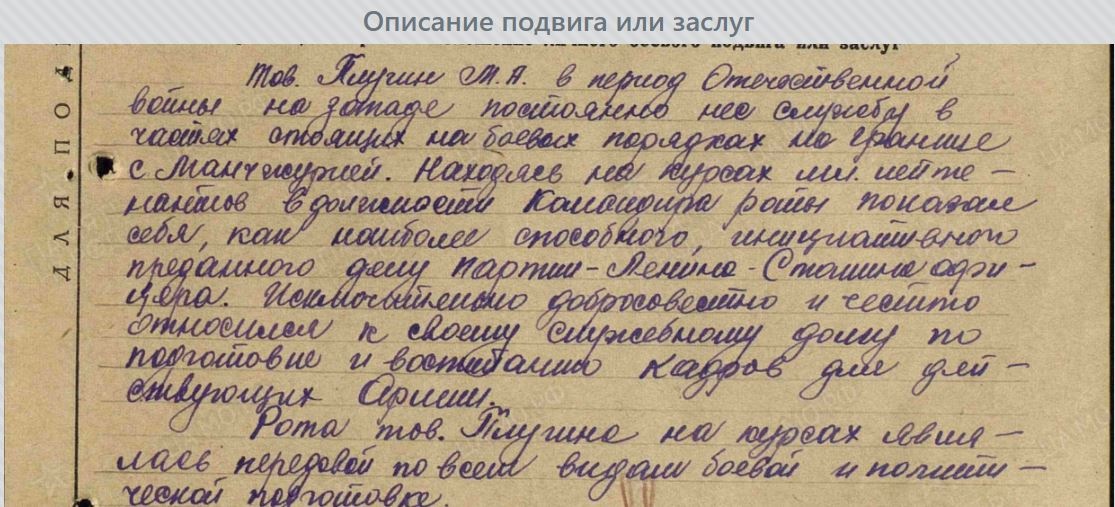 Описание подвига или заслуг
личного боевого подвига или заслуг
Тов. Плугин М.А. в период Отечественной
войны на западе постоянно нес службу в
частях стоящих на боевых порядках на границе
с Манчжурией. Находясь на курсах мл. лейте-
нантов в должности Командира роты показал
себя, как наиболее способного, инициативного
преданного делу партии-Ленина-Сталина офи-
цера. Исключительно добросовестно и честно
относился к своему служебному долгу по
подготовке и воспитанию кадров для дей-
ствующих Армии.
Рота тов. Плугина на курсах явля-
лась передовой по всем видам боевой и полити-
ческой подготовке.
ДЛЯ ПОД